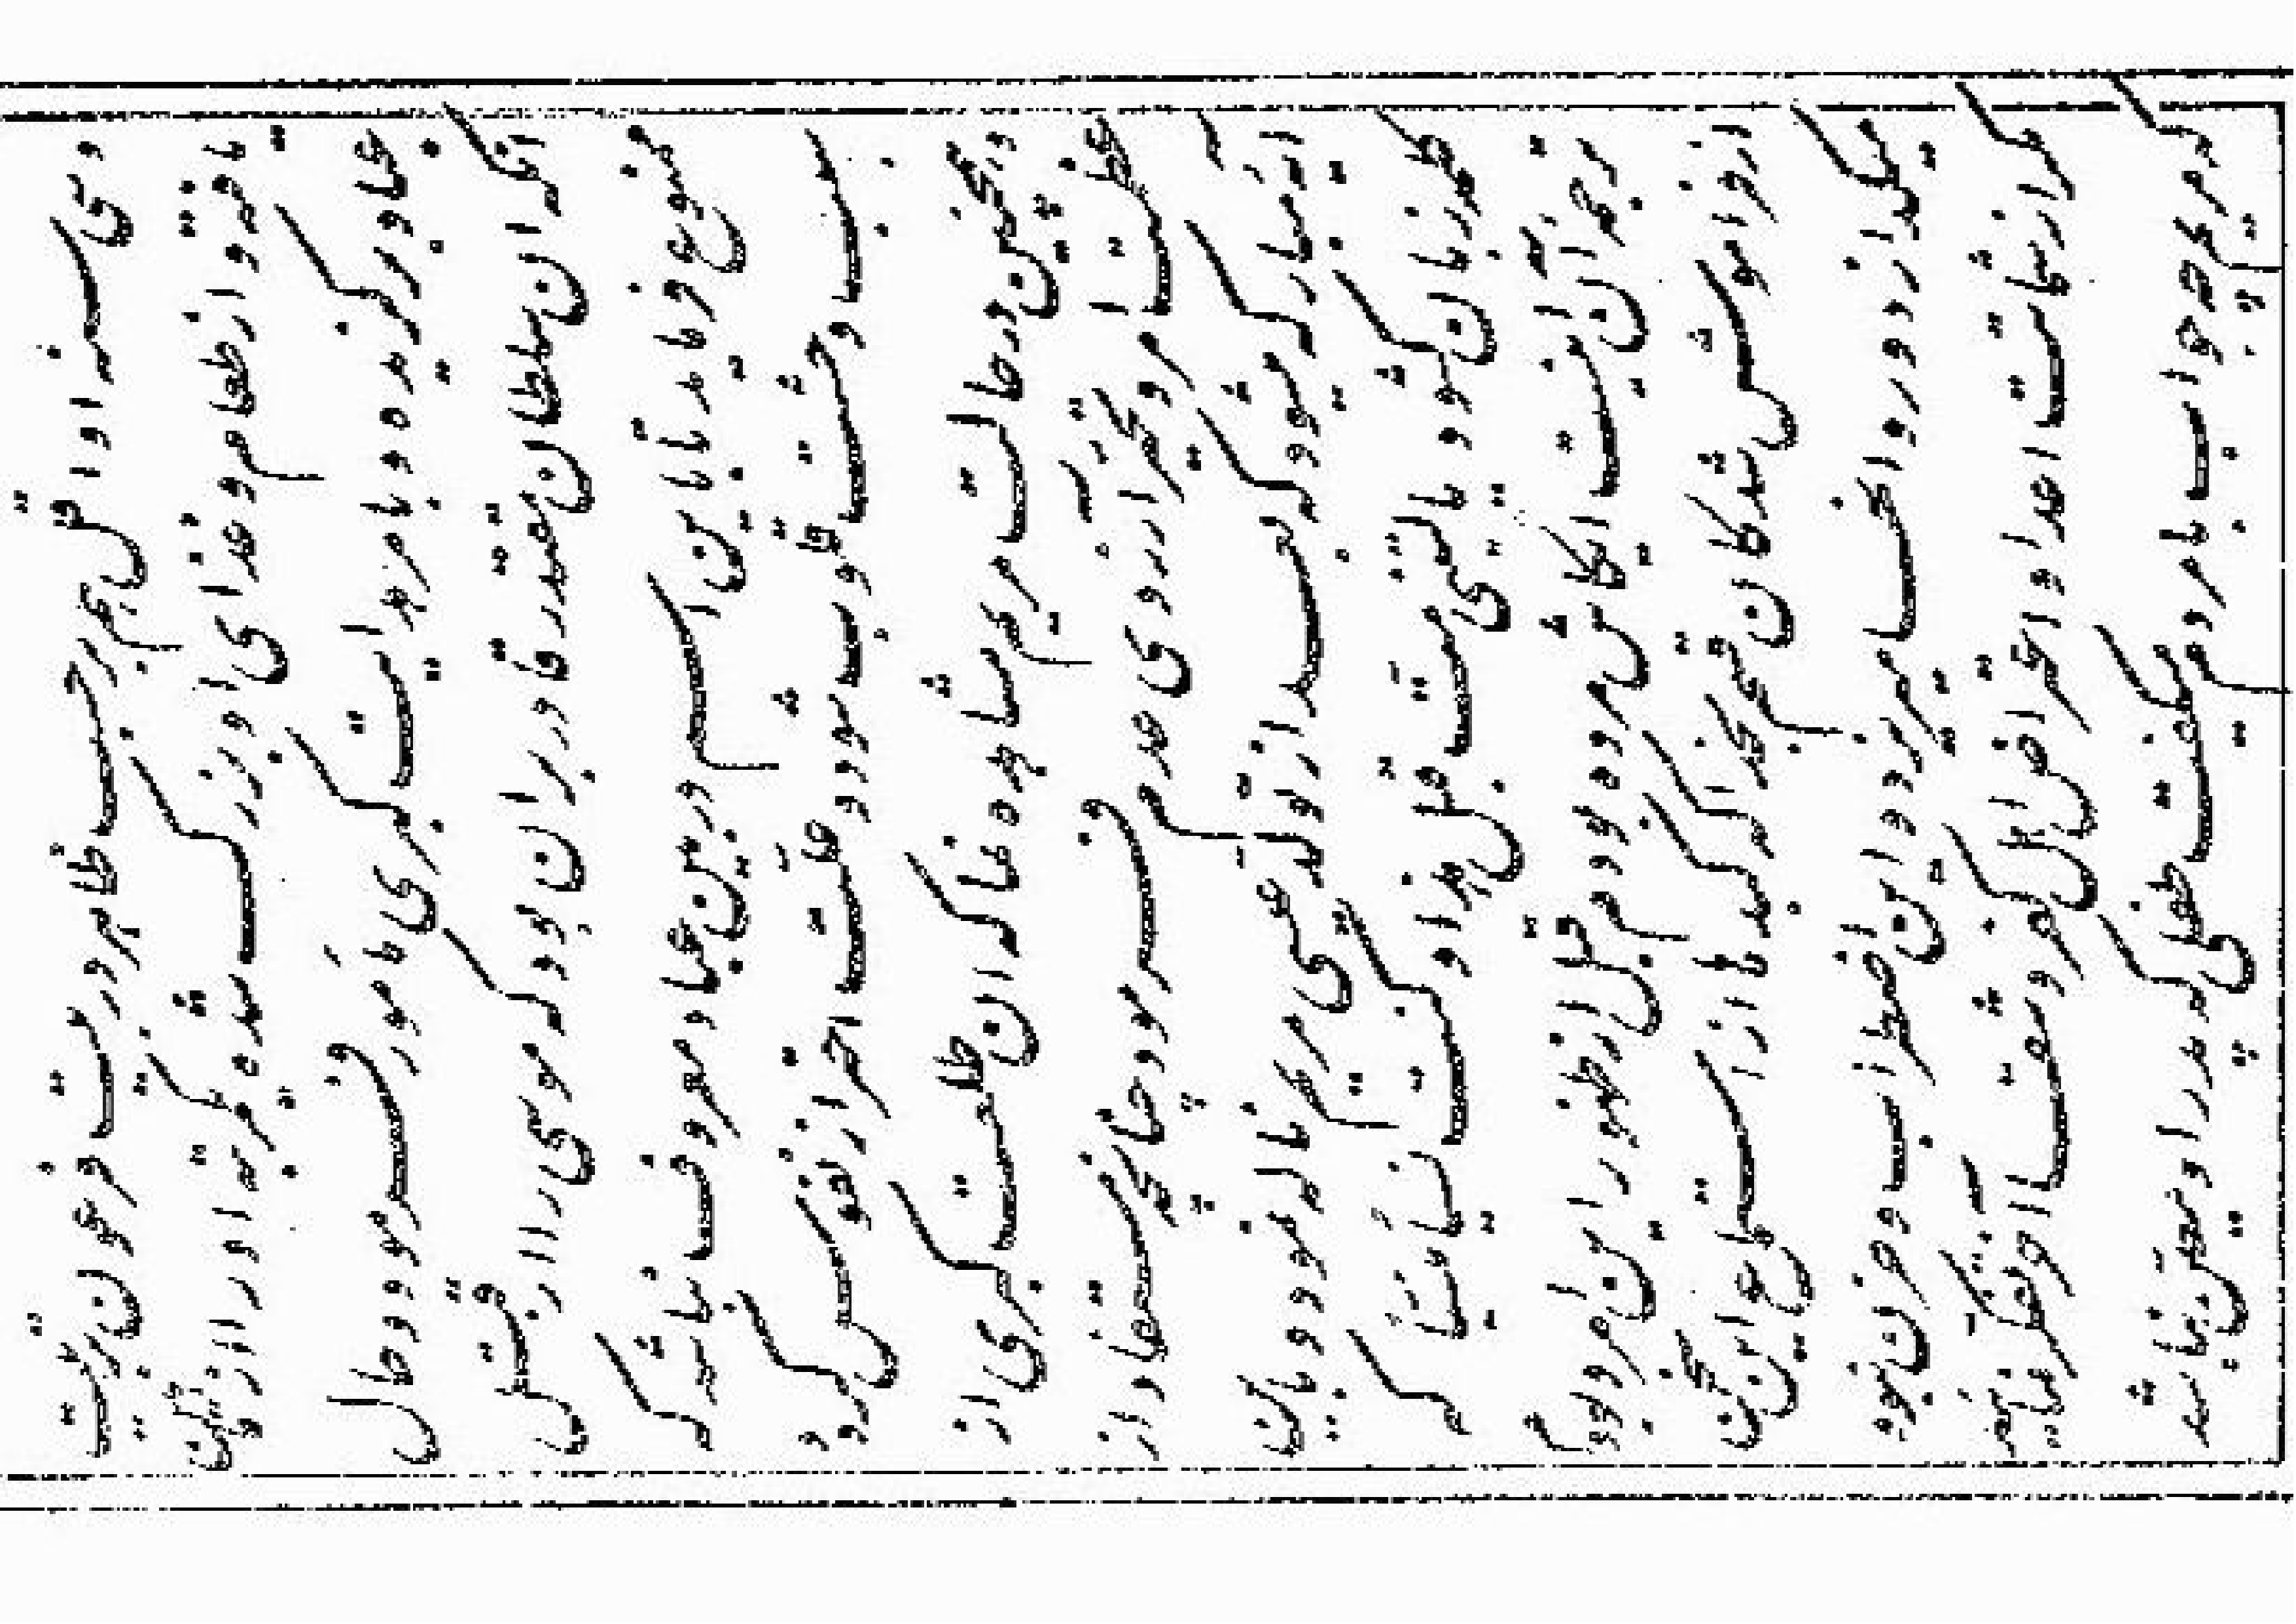 و سی سنه او اقل هم بر حسب ظاهر در بیت فرعون تربیت
یافته و از طعام و غذای او بزرگ شده یکمرتبه او را از بین
عباد برگزیده و بامر هدایت کبری مأمور فرمود و حال
آنکه آن سلطان مقتدر قادر بر آن بود که موسی را از قتل
ممنوع فرماید تا باین اسم در بین عباد معروف نباشد که
سبب وحشت قلوب شود و علت احتراز نفوس گردد
و همچنین در حالت مریم مشاهده نما که آن طلعت کبری از
عظمت امر و تحیر آرزوی عدم فرمود چنانچه مستفاد از
آیه مبارکه میشود که بعد از تولد عیسی مریم ناله نمود و باین
کلمه زبان گشود و یا لیتنی مت قبل هذا و کنت نسیاً منسیاً که
ترجمه آن اینست ایکاش مرده بودم قبل از ظهور این امر و بودم
از فراموش شدگان قسم بخدا که کبدها از استماع این سخن
میگدازد و روانها میریزد و این اضطراب و حزن نبود
مگر از شماتت اعدا و اعتراض اهل کفر و شقاوت آخر تفکر نمائید
که مریم چه جواب با مردم میگفت طفلی که پدر او معین نباشد